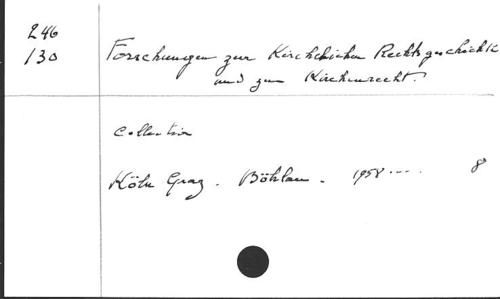 246
130
Forschungen zur Kirchlichen Rechtsgeschichte
und zum Kirchenrecht.
Collection
Köln Graz. Böhlau. 1958.... 8